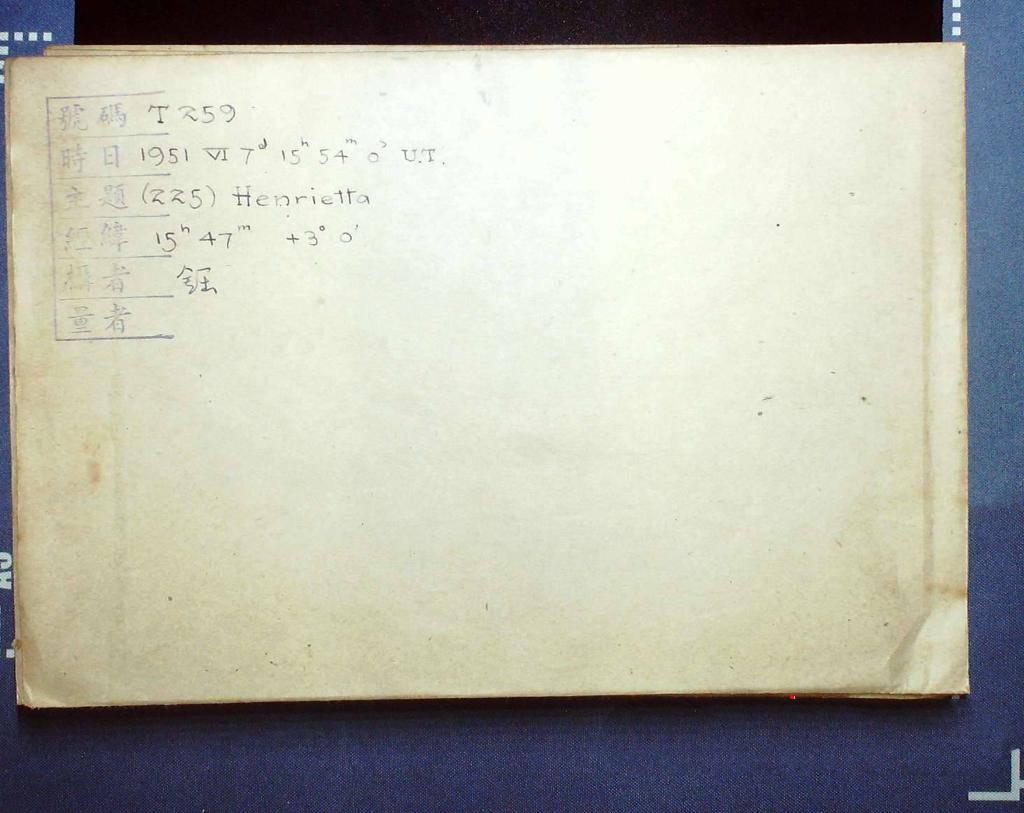 號碼 T 259
時日 1951 VI 7ᵈ 15ʰ 54ᵐ 0ˢ U.T.
主題 (225) Henrietta
經緯 15ʰ 47ᵐ +3° 0'
攝者 鈺
量者